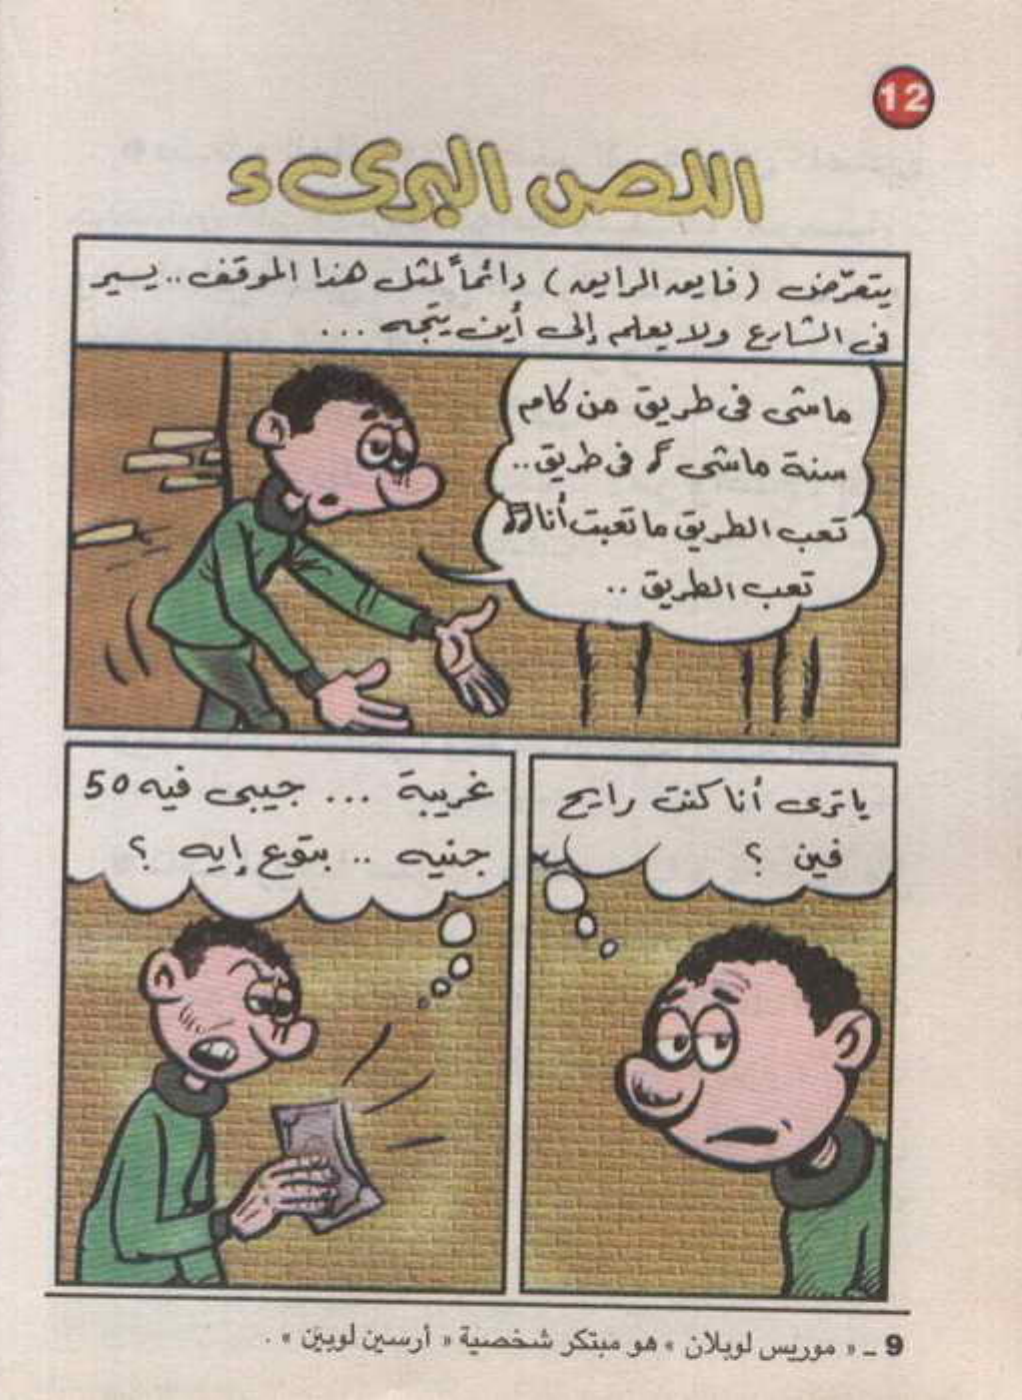 12
اللص البرىء
يتعرّض (فايق الرايق) دائماً لمثل هذا الموقف.. يسير
فى الشارع ولا يعلم إلى أين يتجه ...
ماشى فى طريق من كام
سنة ماشى فى طريق..
تعب الطريق ما تعبت أنا
تعب الطريق ..
ياترى أنا كنت رايح
فين ؟
غريبة ... جيبى فيه 50
جنيه .. بتوع إيه ؟
9 ـ « موريس لوبلان » هو مبتكر شخصية « أرسين لوبين » .